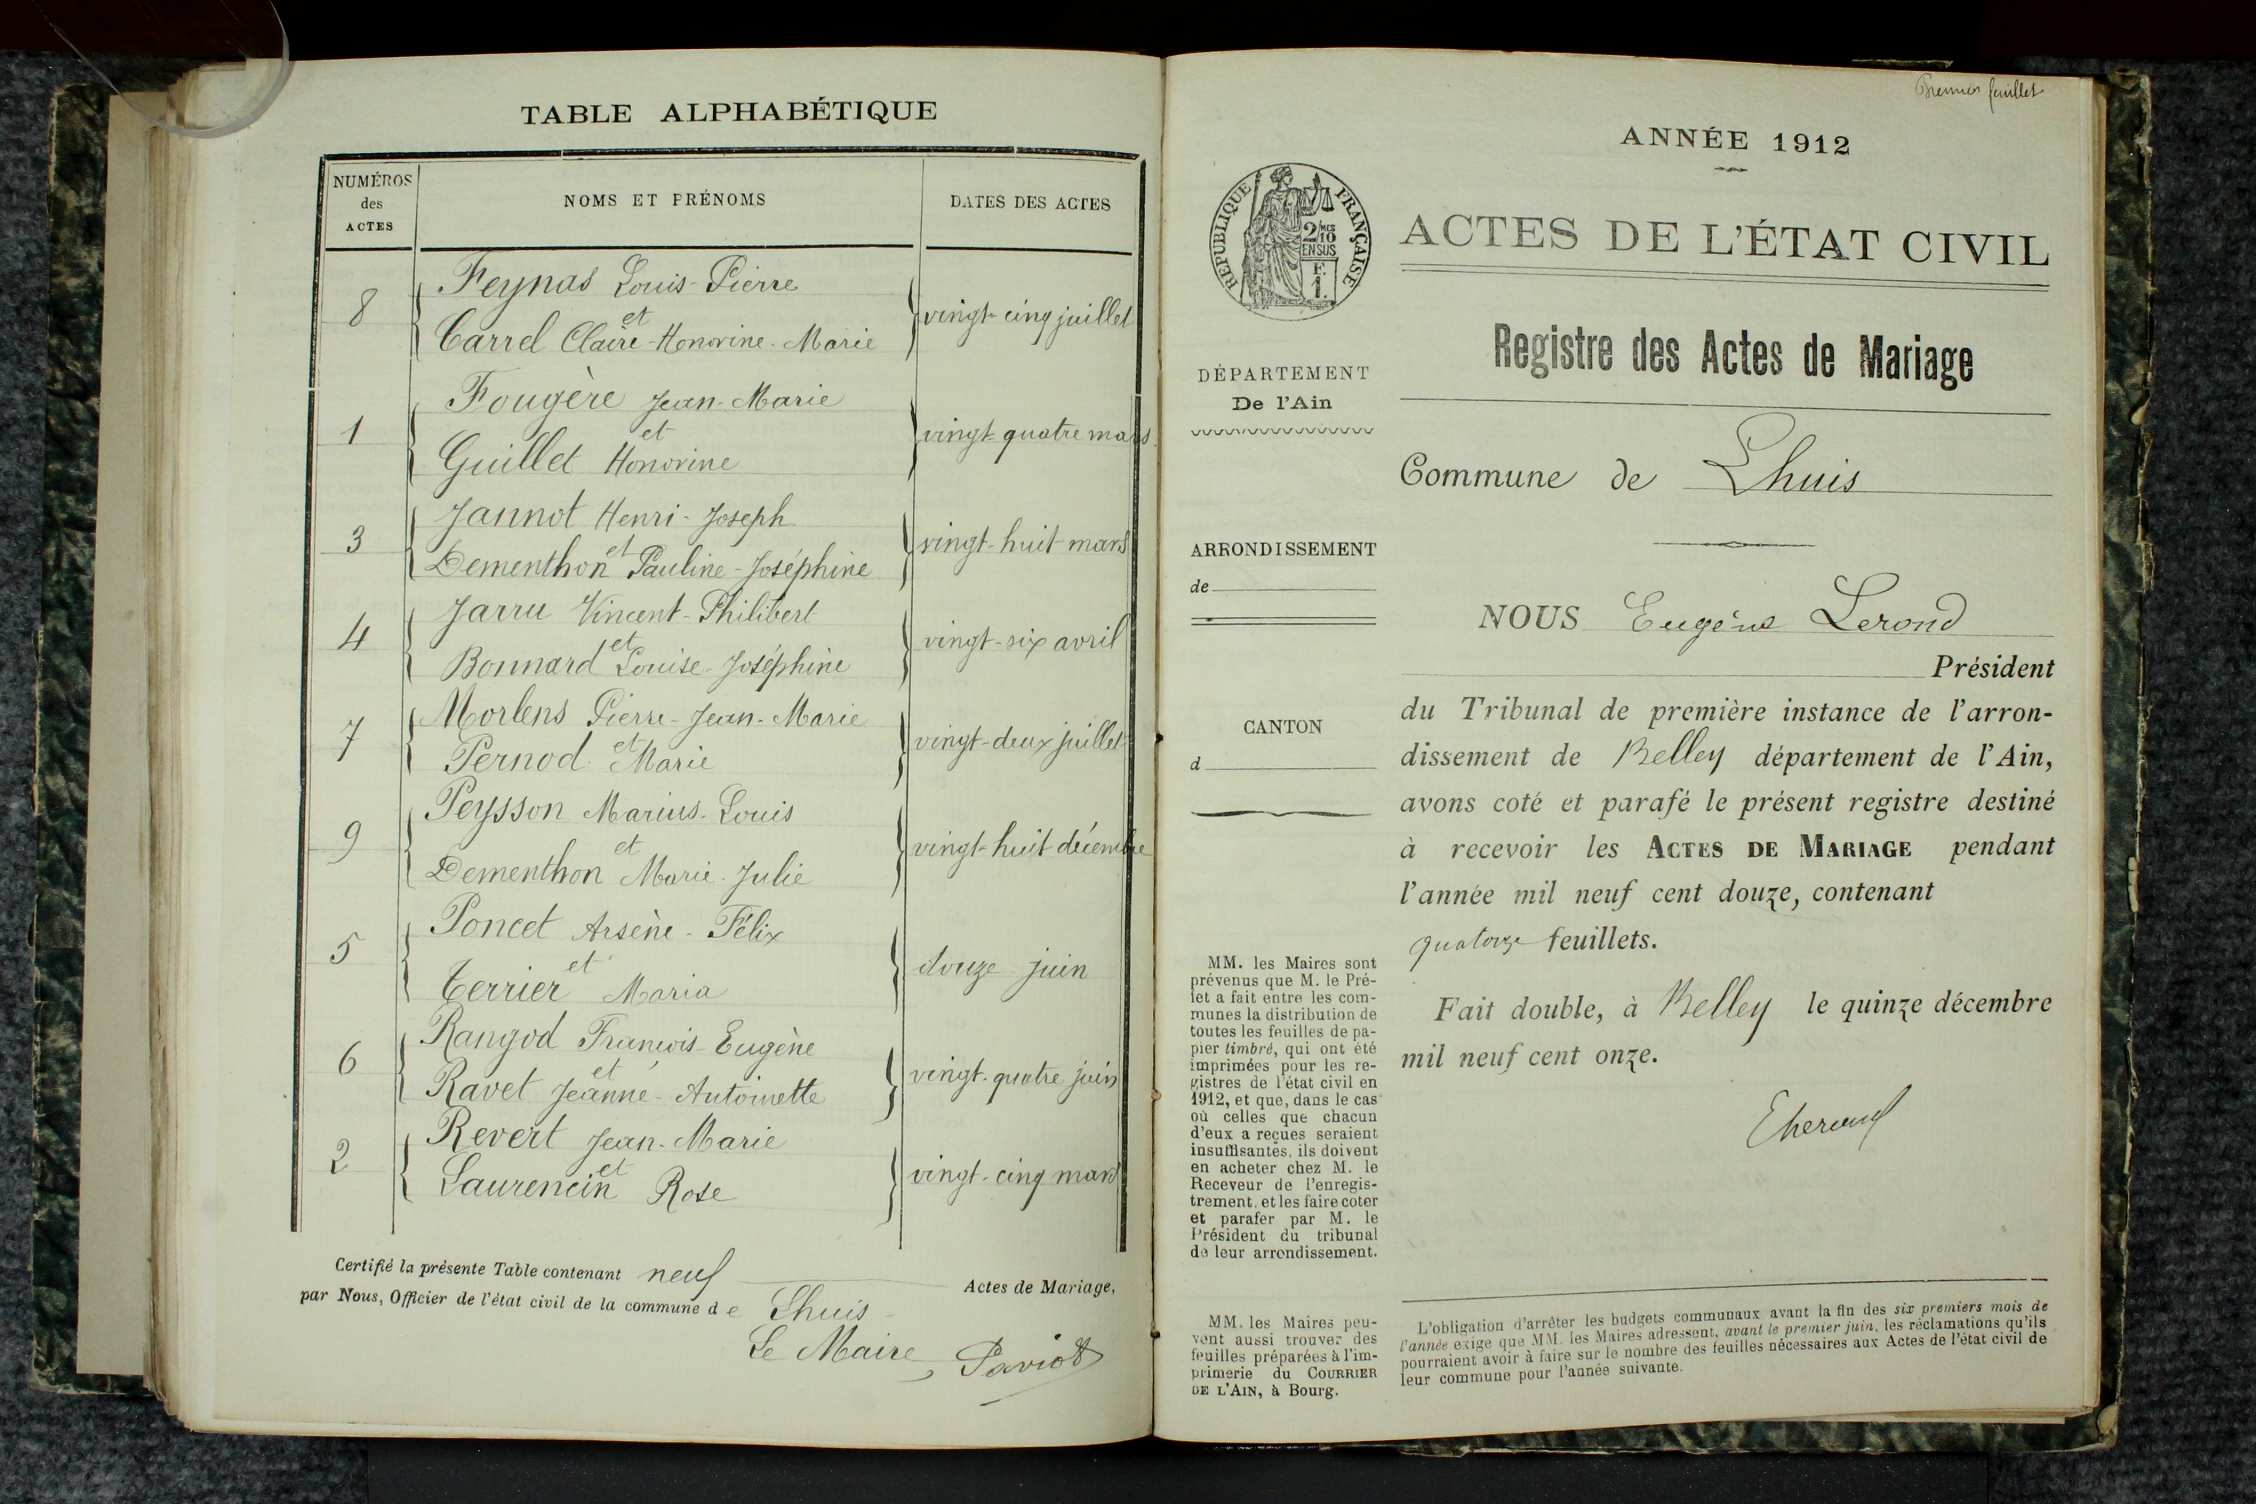 TABLE ALPHABÉTIQUE
NUMÉROS
des
ACTES
NOMS ET PRÉNOMS
DATES DES ACTES
8
Feynas Louis-Pierre
et
Carrel Claire-Honorine-Marie
vingt-cinq juillet
1
Fougère Jean-Marie
et
Guillet Honorine
vingt-quatre mars
3
Jannot Henri-Joseph
et
Dementhon Pauline-Joséphine
vingt-huit mars
4
Jarru Vincent-Philibert
et
Bonnard Louise-Joséphine
vingt-six avril
7
Morlens Pierre-Jean-Marie
et
Pernod Marie
vingt-deux juillet
9
Peysson Marius-Louis
et
Dementhon Marie-Julie
vingt-huit décembre
5
Poncet Arsène-Félix
et
Terrier Maria
douze juin
6
Rangod François-Eugène
et
Ravet Jeanne-Antoinette
vingt-quatre juin
2
Revert Jean-Marie
et
Laurencin Rose
vingt-cinq mars
Certifié la présente Table contenant neuf Actes de Mariage,
par Nous, Officier de l'état civil de la commune de Lhuis
Le Maire
Paviot
Premier feuillet
ANNÉE 1912
RÉPUBLIQUE FRANÇAISE
2/10MES
EN SUS
F.
1.
ACTES DE L'ÉTAT CIVIL
Registre des Actes de Mariage
DÉPARTEMENT
De l'Ain
Commune de Lhuis
ARRONDISSEMENT
de
CANTON
d
NOUS Eugène Lerond
Président
du Tribunal de première instance de l'arron-
dissement de Belley département de l'Ain,
avons coté et parafé le présent registre destiné
à recevoir les ACTES DE MARIAGE pendant
l'année mil neuf cent douze, contenant
quatorze feuillets.
Fait double, à Belley le quinze décembre
mil neuf cent onze.
MM. les Maires sont
prévenus que M. le Pré-
fet a fait entre les com-
munes la distribution de
toutes les feuilles de pa-
pier timbré, qui ont été
imprimées pour les re-
gistres de l'état civil en
1912, et que, dans le cas
où celles que chacun
d'eux a reçues seraient
insuffisantes, ils doivent
en acheter chez M. le
Receveur de l'enregis-
trement, et les faire coter
et parafer par M. le
Président du tribunal
de leur arrondissement.
MM. les Maires peu-
vent aussi trouver des
feuilles préparées à l'im-
primerie du COURRIER
DE L'AIN, à Bourg.
L'obligation d'arrêter les budgets communaux avant la fin des six premiers mois de
l'année exige que MM. les Maires adressent, avant le premier juin, les réclamations qu'ils
pourraient avoir à faire sur le nombre des feuilles nécessaires aux Actes de l'état civil de
leur commune pour l'année suivante.